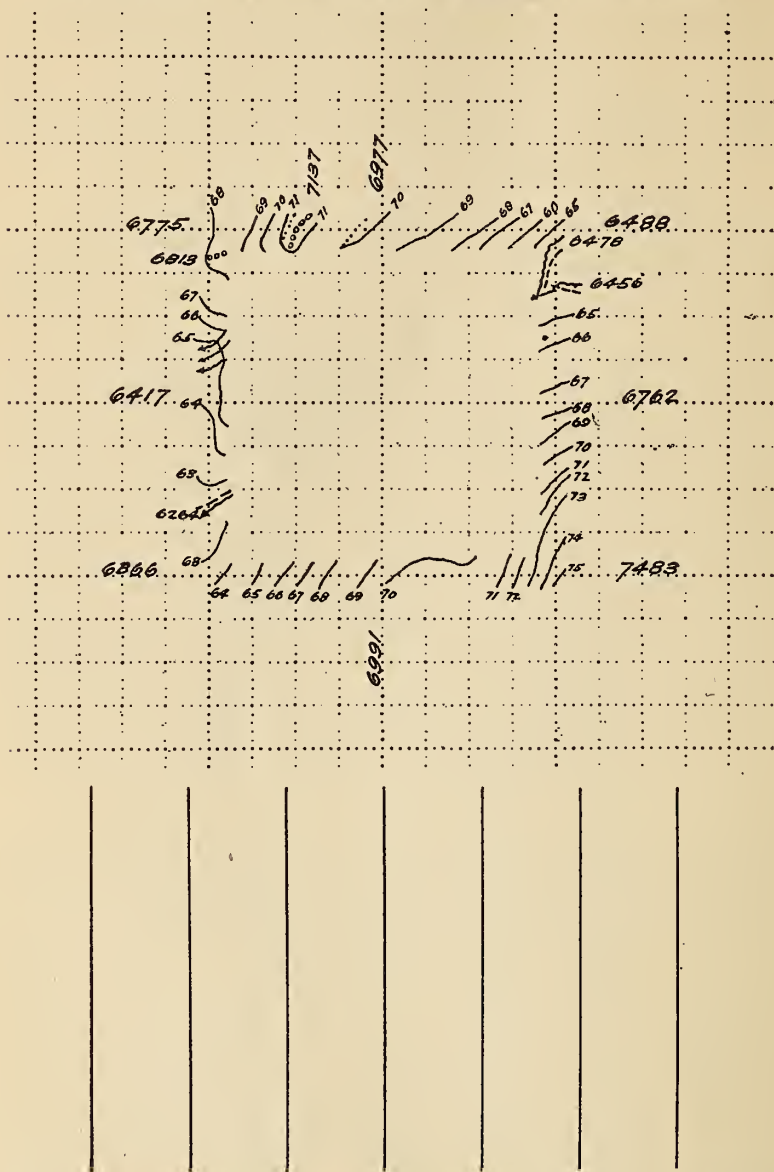 7137
6977
68
69
70
71
71
70
69
68
67
60
65
6775
6488
6478
6813
6456
67
66
65
65
66
6417
64
67
6762
68
69
70
71
72
73
63
6264
74
63
6866
64
65
66
67
68
69
70
71
72
75
7483
6991